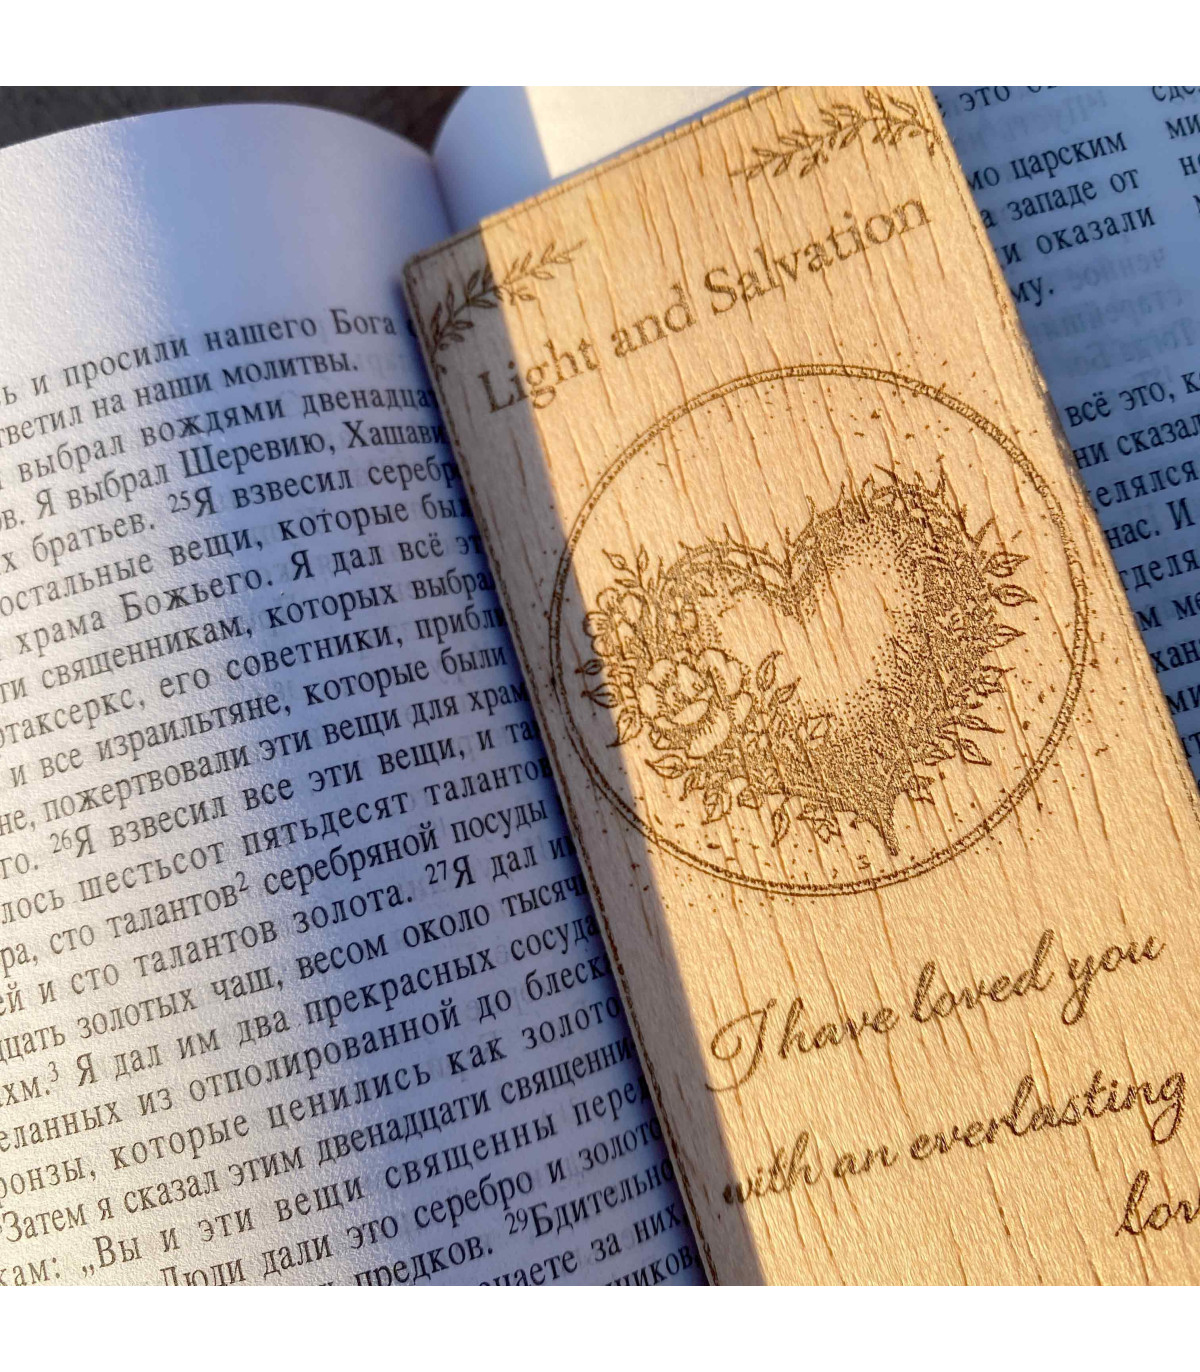 ь и просили нашего Бога
ответил на наши молитвы.
выбрал вождями двенадцат
ов. Я выбрал Шеревию, Хашави
х братьев. ²⁵Я взвесил серебр
остальные вещи, которые был
храма Божьего. Я дал всё эт
ти священникам, которых выбрал
ртаксеркс, его советники, прибли
и все израильтяне, которые были
не, пожертвовали эти вещи для храм
го. ²⁶Я взвесил все эти вещи, и та
лось шестьсот пятьдесят талантов
ра, сто талантов² серебряной посуды
ей и сто талантов золота. ²⁷Я дал и
дцать золотых чаш, весом около тысяч
ахм.³ Я дал им два прекрасных сосуда
еланных из отполированной до блеск
ронзы, которые ценились как золото
Затем я сказал этим двенадцати священни
кам: „Вы и эти вещи священны перед
Люди дали это серебро и золото
предков. ²⁹Бдительно
за них
ников
Light and Salvation
I have loved you
with an everlasting
lov
это
мо царским
а западе от
и оказали
му.
всё это, к
ни сказал
елялся
нас. И
тделя
м ме
хан
ми